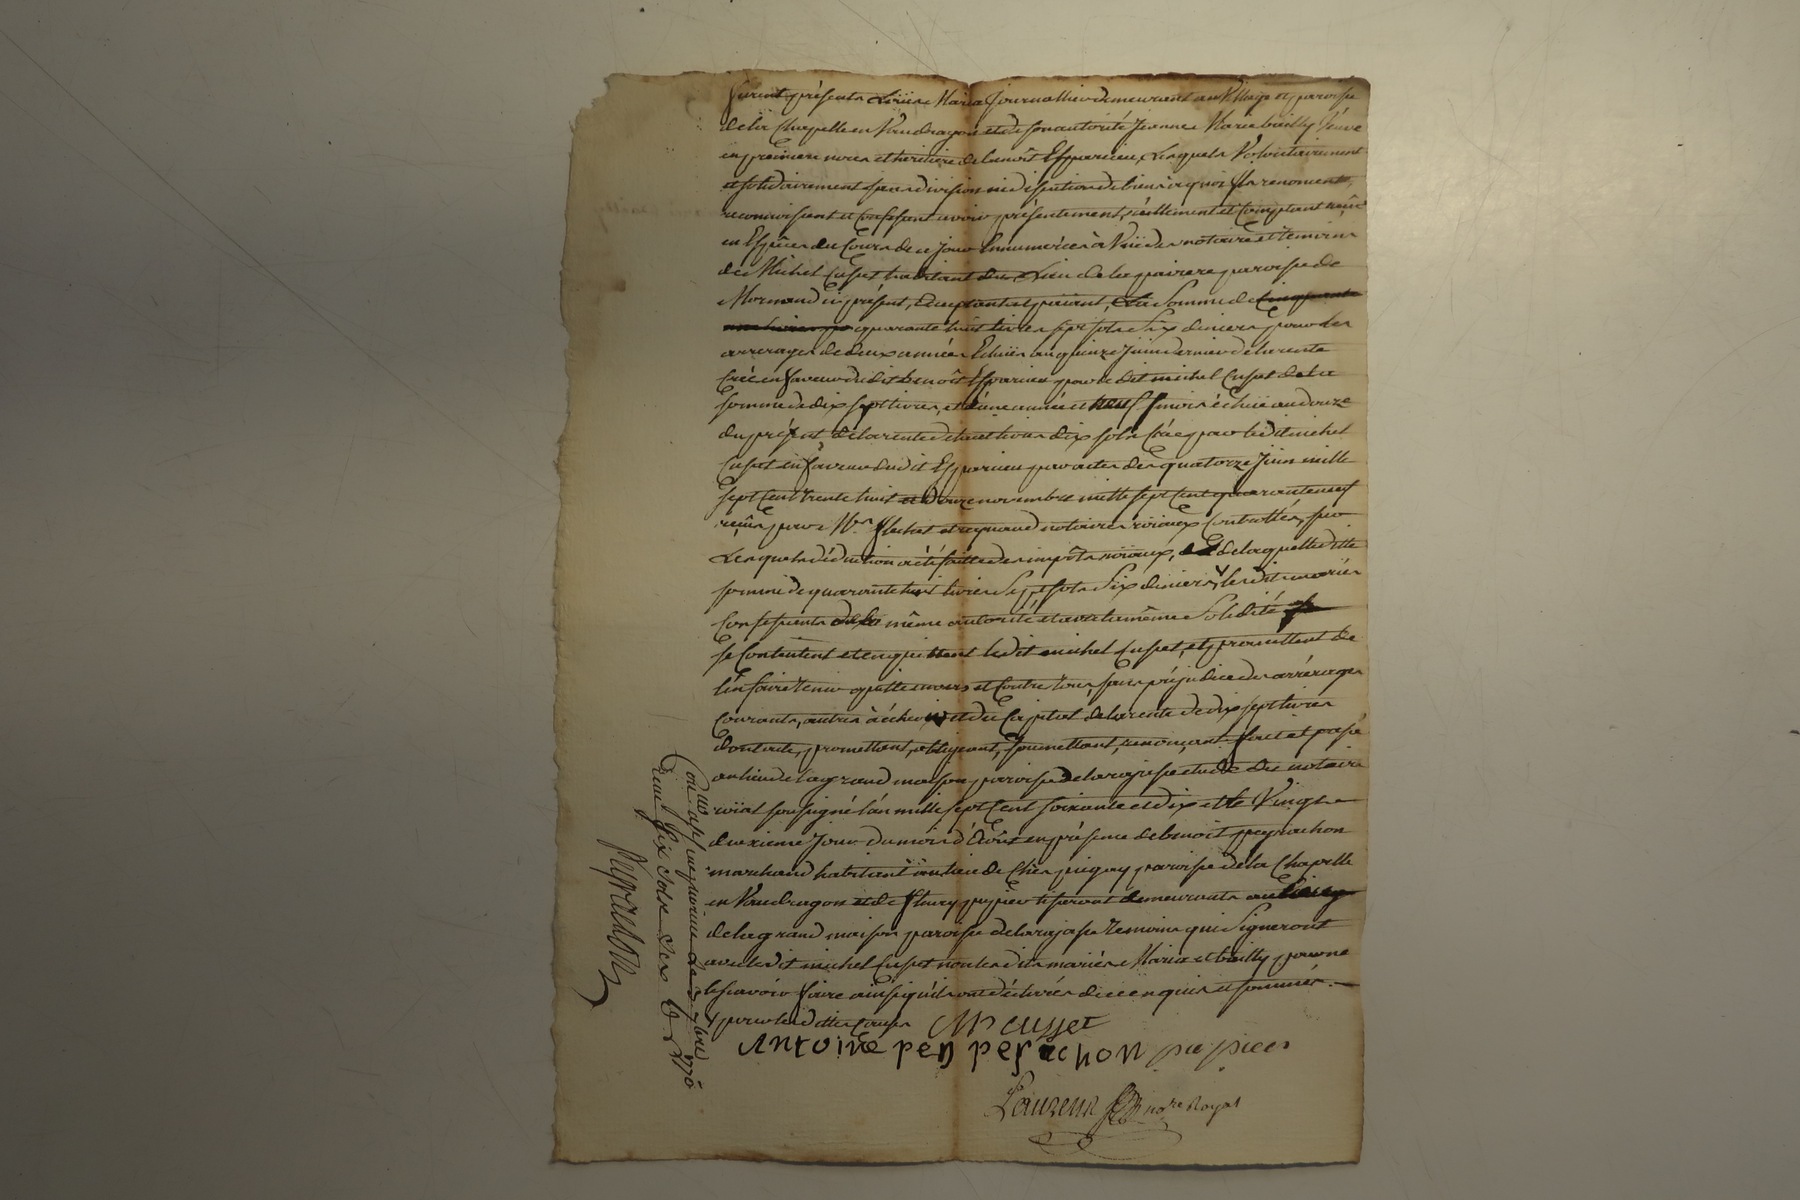 furent présents Louis Maria journallier demeurant au Village et paroisse
de la Chapelle en Vaudragon et de son autorité Jeanne Marie bailly Veuve
en premiere noces et heritiere de benoît Esparieu, Lesquels Volontairement
et solidairement sans division ni discution de biens à quoi ils renoncent,
reconnoissent et confessent avoir présentement, réellement et Comptant reçû
en Espèces du Cours de ce jour Ennumérées à Vüe des notaire et temoins
de Michel Cusset habitant du Lieu de la paroisse de
Mornand ici présent, acceptant et païant, la Somme de cinquante
quarante huit livres sept sols Six deniers pour les
arrerages de deux années Echües au quinze Juin dernier de la rente
Créé en faveur dudit benoît Esparieu par ledit michel Cusset de la
somme de dix sept livres, et d'une année et neuf mois échüe au douze
du présent, de la rente de huit livres dix sols Créé par ledit michel
Cusset en faveur dudit Esparieu par actes des quatorze Juin mille
sept Cent trente huit et douze novembre mille sept Cent quarante neuf
reçûs par Mes flachat et reynaud notaires roïaux Controllés, sur
Lesquels déduction a été faitte des impôts roïaux, de laquelle ditte
somme de quarante huit livres Sept sols Six deniers, lesdits mariés
Confessants de la même autorité et avec la même Solidité
se Contentent et en quittent ledit michel Cusset, et promettent de
l'en faire tenir quitte envers et Contre tous, sans préjudice des arrérages
courants, autres à échoir et du Capital de la rente de dix sept livres
dont acte, promettant, obligeant, soumettant, renonçant fait et passé
au lieu de la grand maison paroisse de larajasse etude du notaire
roïal soussigné l'an mille sept Cent soixante et dix et le Vingt
deuxieme jour du mois d'Août en présence de benoît peyrachon
marchand habitant au lieu de paroisse de la Chapelle
en Vaudragon et de fleury papier tisserant demeurants au
de la grand maison paroisse de larajasse temoins qui Signeront
avec ledit michel Cusset non lesdits mariés Maria et bailly pour ne
le sçavoir faire ainsi qu'ils ont déclarés de ce enquis et sommés.
pour les dittes Causes M cusset
Antoine pey perachon papier
Laurent nore Royal
reçu Six Sols Six d